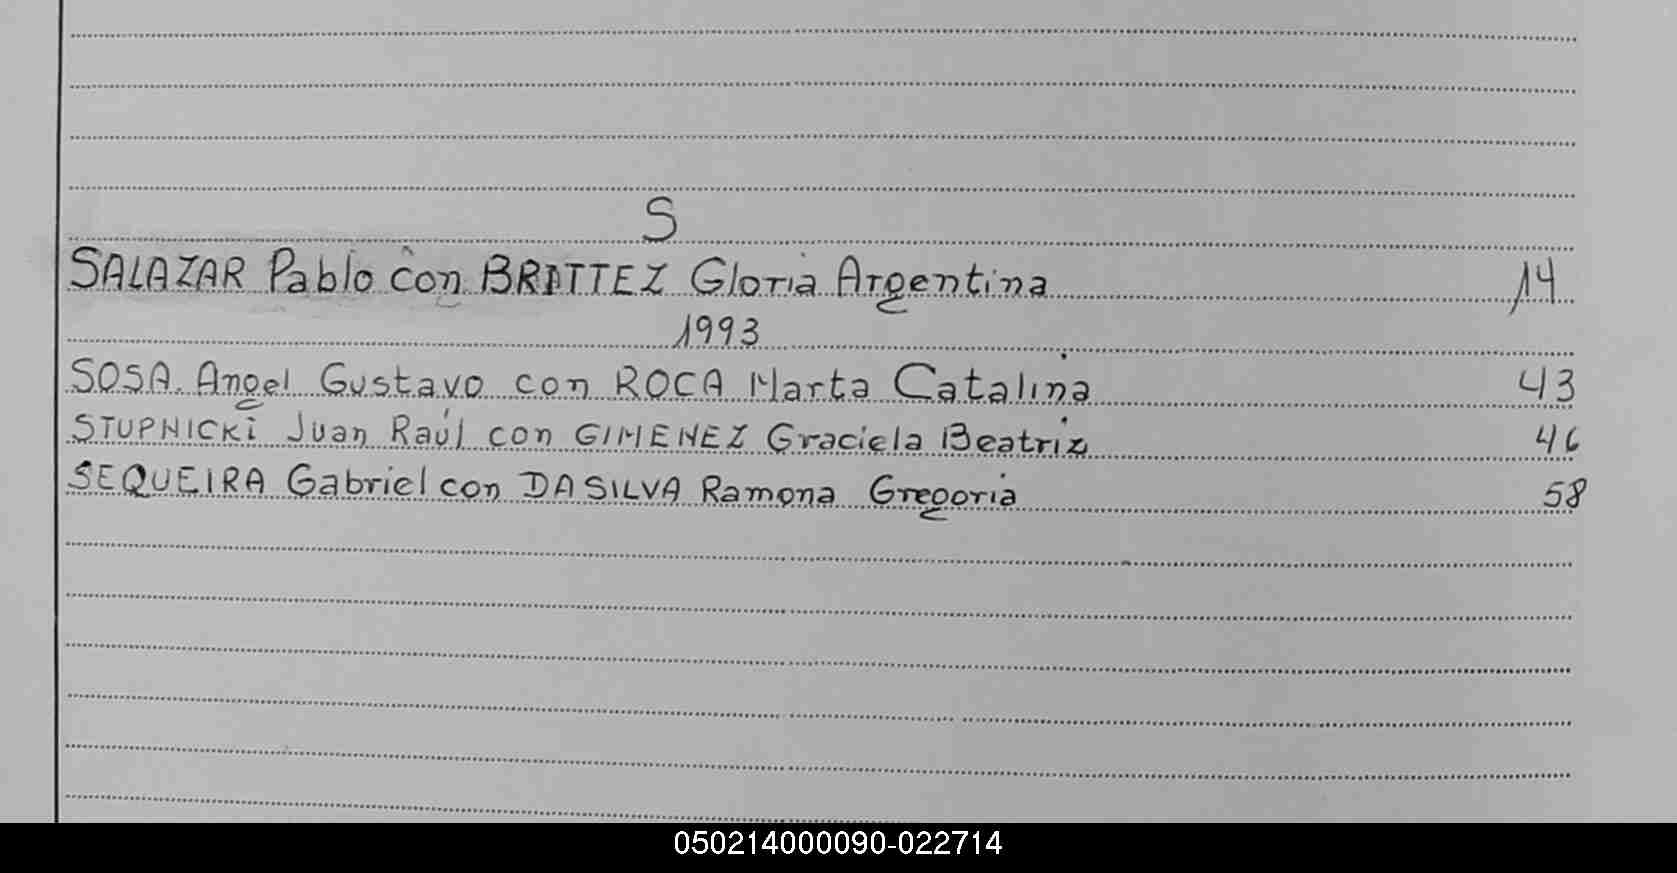 S
SALAZAR Pablo con BRITTEZ Gloria Argentina 14
1993
SOSA. Angel Gustavo con ROCA Marta Catalina 43
STUPNICKI Juan Raúl con GIMENEZ Graciela Beatriz 46
SEQUEIRA Gabriel con DA SILVA Ramona Gregoria 58
050214000090-022714